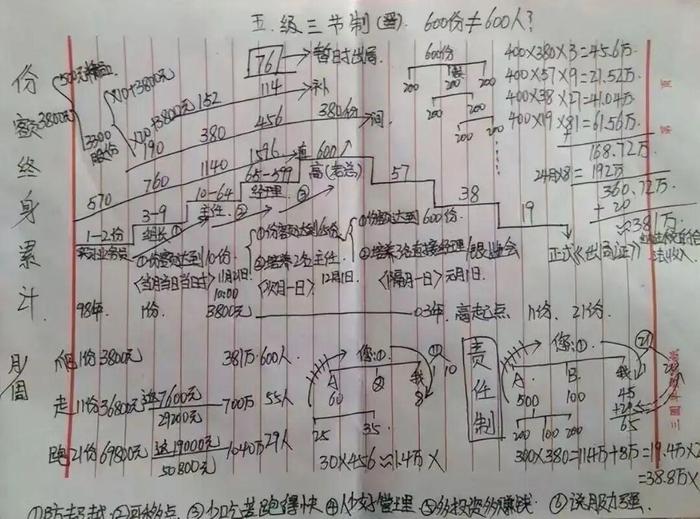 五级三节制(晋). 600份≠600人?
份额终身累计.
500元
3800元
3300股份
×10+3800元 152
114 → 补
761 → 暂时出局
×20+3800元
190 380 456 380份 → 间
570 760 1140 1596 → 直
600份
200 200 200
200 200
200 200
400×380×3=45.6万
400×57×9=21.52万
400×38×27=41.04万
400×19×81=61.56万
168.72万
24月×8=192万
360.72万
+ 20
≈381万
1-2份
3-9
组长①
10-64
主任②
65-599
经理③
600
高(老总)
57
38
19
正式《出局证》
①份额达到10份
<当月当日当时>
11月21日
10:00
①份额达到65份
②培养2位主任
<次月一日>
12月1日
①份额达到600份.
②培养3名直接经理
<隔月一日>元月1日
98年. 1份 3800元 03年. 高起点 11份. 21份
1份3800元 381万·600人
走11份36800元 7600元 29200元 700万 55人
跑21份69800元 19000元 50800元 1040万 29人
您①
A ② 我
60
25 35
10
30×456≈1.4万×
责任制
您①
A. B. 我
500 100 45
200 100 200
65
300×380=11.4万+8万=19.4万×2
=38.8万×
③能吃苦跑得快 ④人好管理 ⑤多投资多赚钱 ⑥说服力强